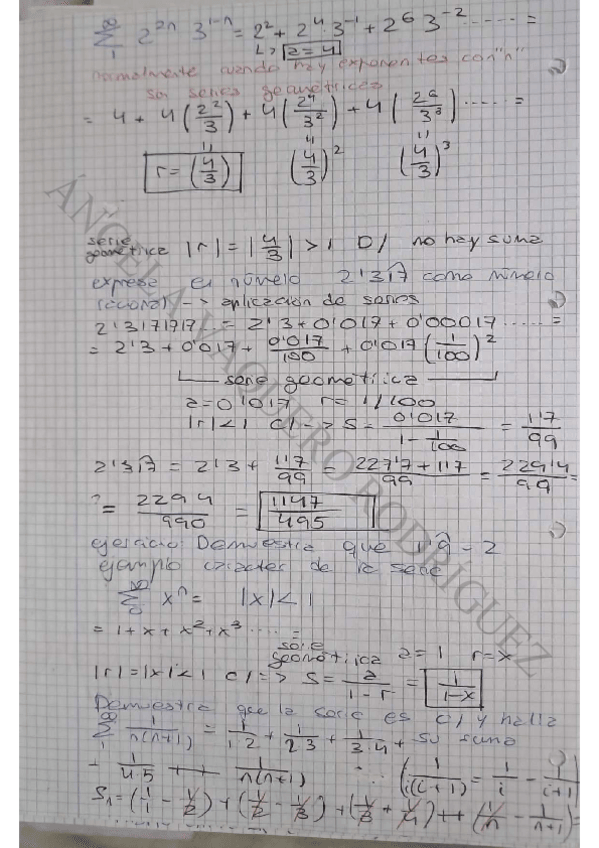 ∞ Σ 1 2^{2n} 3^{1-n} = 2² + 2⁴·3⁻¹ + 2⁶ 3⁻² ...... =
L> a = 4
normalmente cuando hay exponentes con "n"
son series geometricas
= 4 + 4 (2²/3) + 4 (2⁴/3²) + 4 (2⁶/3³) ...... =
r = (4/3) (4/3)² (4/3)³
serie geometrica |r| = |4/3| > 1 D/ no hay suma
exprese el número 2'317 como número
racional -> aplicación de series
2'3171717 = 2'3 + 0'017 + 0'00017 ...... =
= 2'3 + 0'017 + 0'017/100 + 0'017 (1/100)²
serie geometrica
a = 0'017 r = 1/100
|r| < 1 C/ -> S = 0'017/(1 - 1/100) = 1'7/99
2'317 = 2'3 + 1'7/99 = (227'7 + 1'7)/99 = 229'4/99 =
= 2294/990 = 1147/495
ejercicio: Demuestra que 1'9 = 2
ejemplo caracter de la serie
∞ Σ 0 xⁿ = |x| < 1
= 1 + x + x² + x³ ..... =
serie geométrica a = 1 r = x
|r| = |x| < 1 C/ => S = a/(1 - r) = 1/(1 - x)
Demuestra que la serie es C/ y halla
∞ Σ 1 1/n(n+1) = 1/1·2 + 1/2·3 + 1/3·4 + su suma
+ 1/4·5 + + 1/n(n+1) (1/i(i+1) = 1/i - 1/i+1)
Sₙ = (1/1 - 1/2) + (1/2 - 1/3) + (1/3 + 1/4) + + (1/n - 1/n+1) =
ÁNGELA VAQUERO RODRÍGUEZ